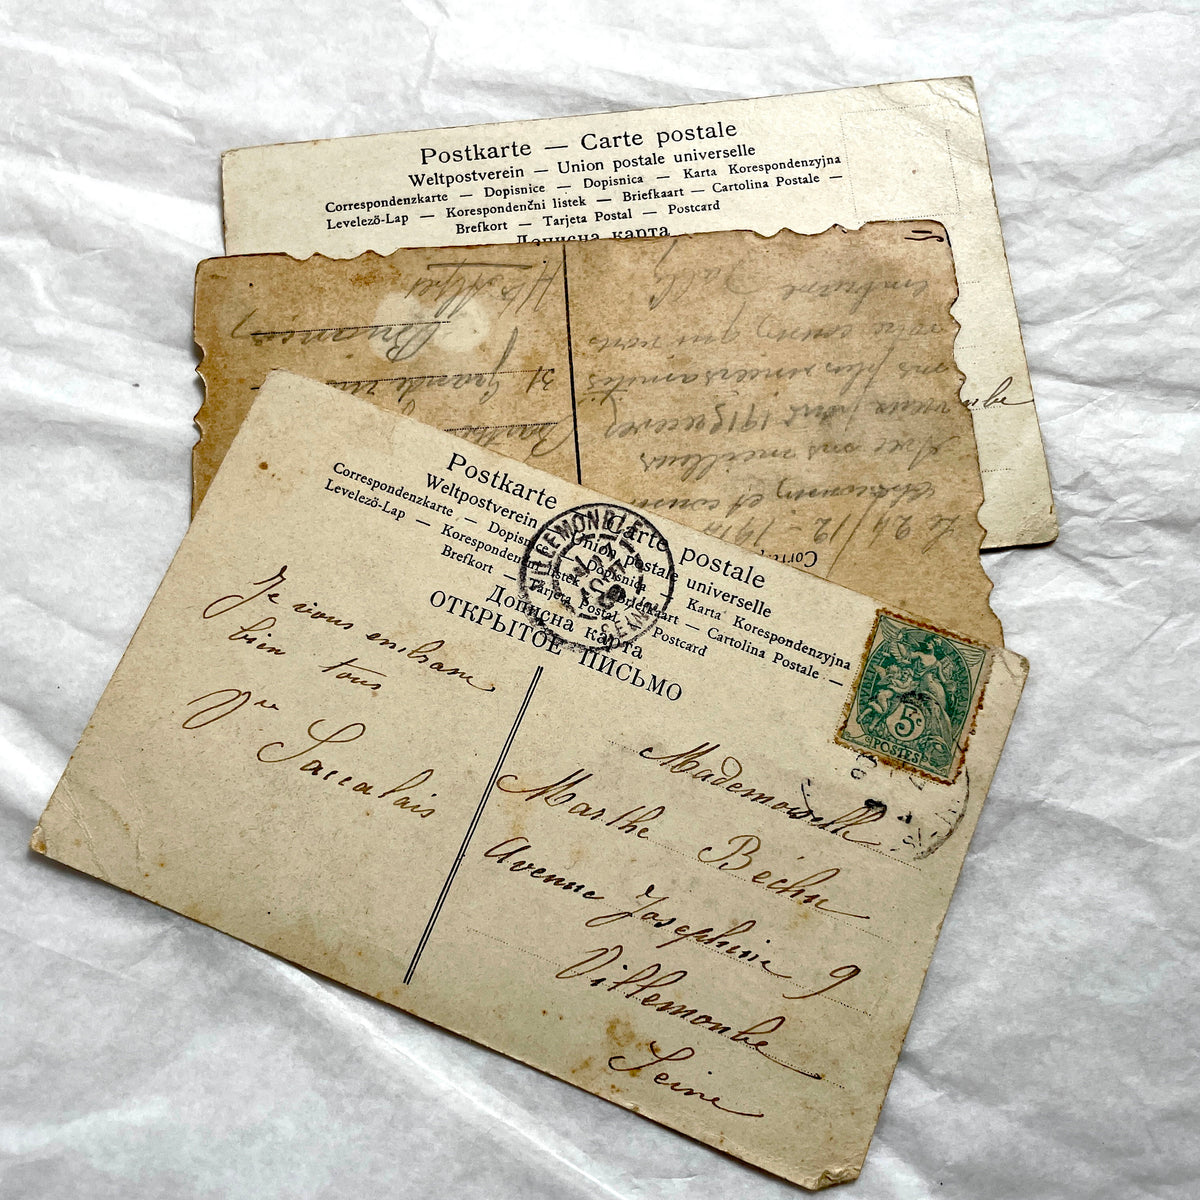 Postkarte — Carte postale
Weltpostverein — Union postale universelle
Correspondenzkarte — Dopisnice — Dopisnica — Karta Korespondenzyjna
Levelező-Lap — Korespondenční listek — Briefkaart — Cartolina Postale —
Brefkort — Tarjeta Postal — Postcard
Дописна карта
Le 24/12-1914
Avec nos meilleurs
vœux pour 1915 recevez
nos plus sincères amitiés
votre cousin qui vous
embrasse
31 Grande
Htes Alpes
Postkarte — Carte postale
Weltpostverein — Union postale universelle
Correspondenzkarte — Dopisnice — Dopisnica — Karta Korespondenzyjna
Levelező-Lap — Korespondenční listek — Briefkaart — Cartolina Postale —
Brefkort — Tarjeta Postal — Postcard
Дописна карта
ОТКРЫТОЕ ПИСЬМО
VILLEMOMBLE
SEINE
5c
POSTES
Je vous embrasse
bien tous
Vve Saccalais
Mademoiselle
Marthe Béchu
Avenue Josephine 9
Villemomble
Seine